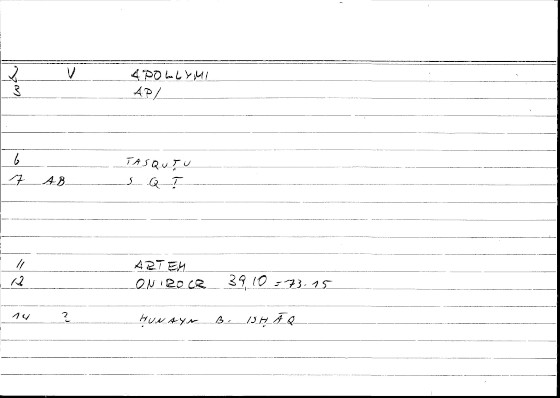 2 V APOLLYMI
3 AP/
6 TASQUṬU
7 AB S Q Ṭ
11 ARTEM
12 ONIROCR 39,10 = 73.15
14 2 ḤUNAYN B. ISḤĀQ